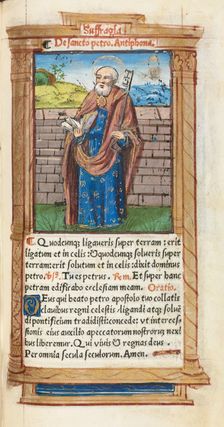 Suffragia
¶ De sancto petro. Antiphona.
¶ Quodcumqz ligaveris super terram: erit
ligatum et in celis: et Quodcumqz solveris super
terram: erit solutum et in celis: dicit dominus
petro. Vs. Tu es petrus. Rem. Et super hanc
petram edificabo ecclesiam meam. Oratio.
Deus qui beato petro apostolo tuo collatis
clavibus regni celestis ligandi atqz solvē
di pontificium tradidisti: concede: ut interces-
sionis eius auxilio a peccatorum nostrorum nexi
bus liberemur. Qui vivis et regnas deus
Per omnia secula seculorum. Amen.